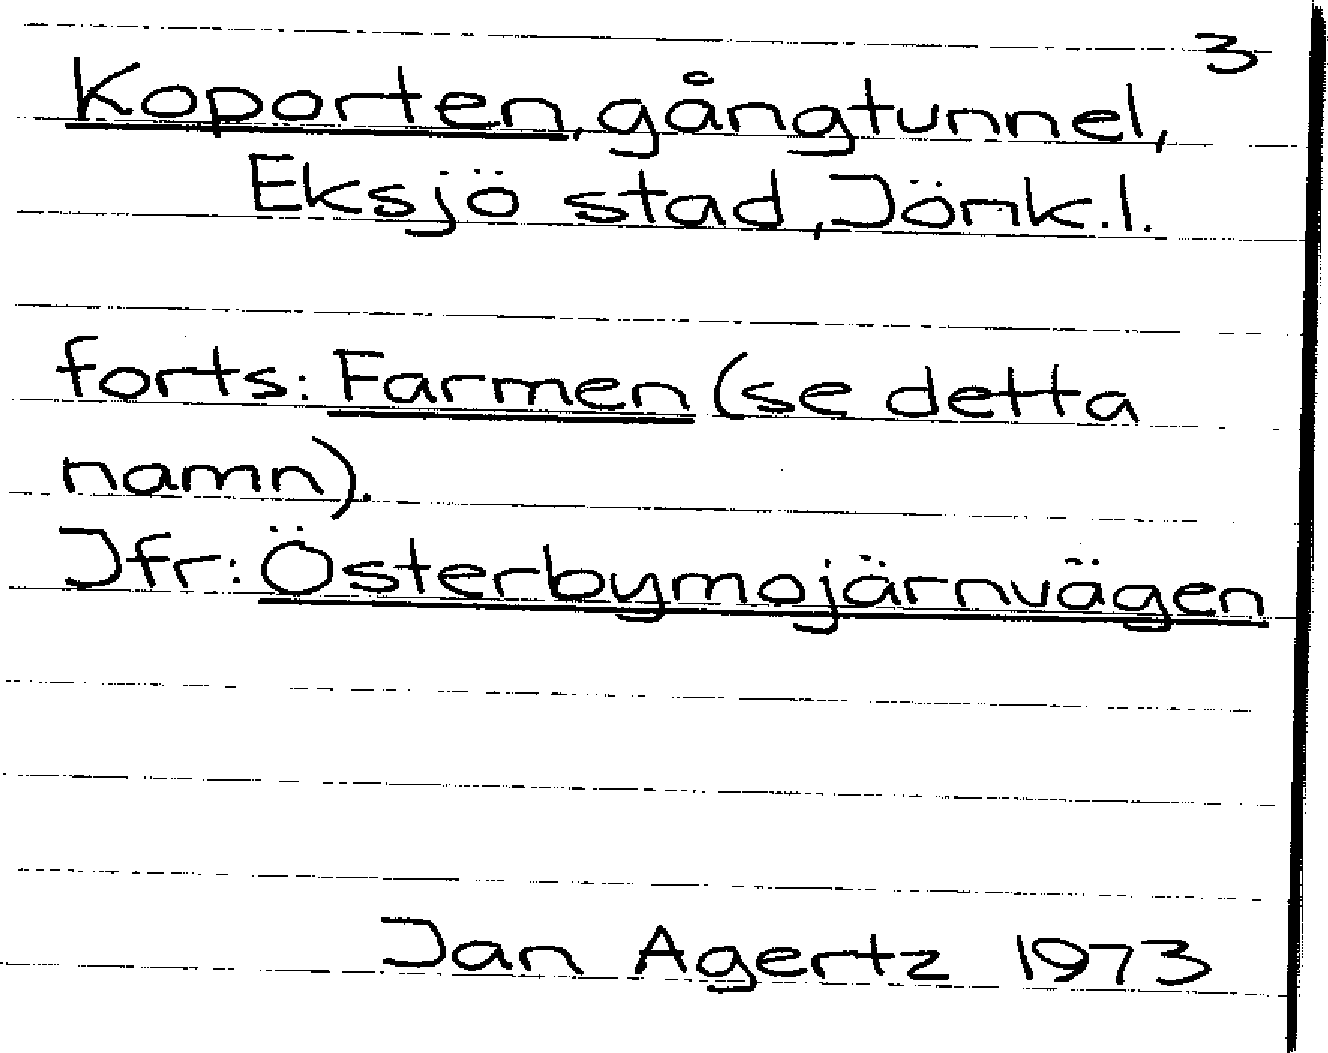 3
Koporten, gångtunnel,
Eksjö stad, Jönk.l.
forts: Farmen (se detta
namn).
Jfr: Österbymojärnvägen
Jan Agertz 1973